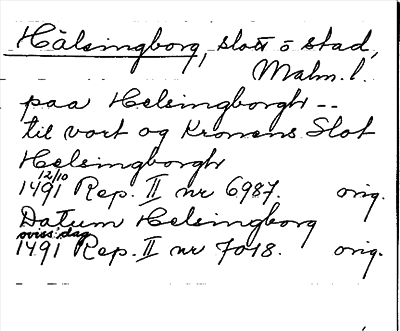 Hälsingborg, slott o stad,
Malm. l.
paa Helsingborgh --
til vort og Kronens Slot
Helsingborgh
12/10
1491 Rep. II nr 6987. orig.
Datum Helsingborg
oviss dag
1491 Rep. II nr 7018. orig.